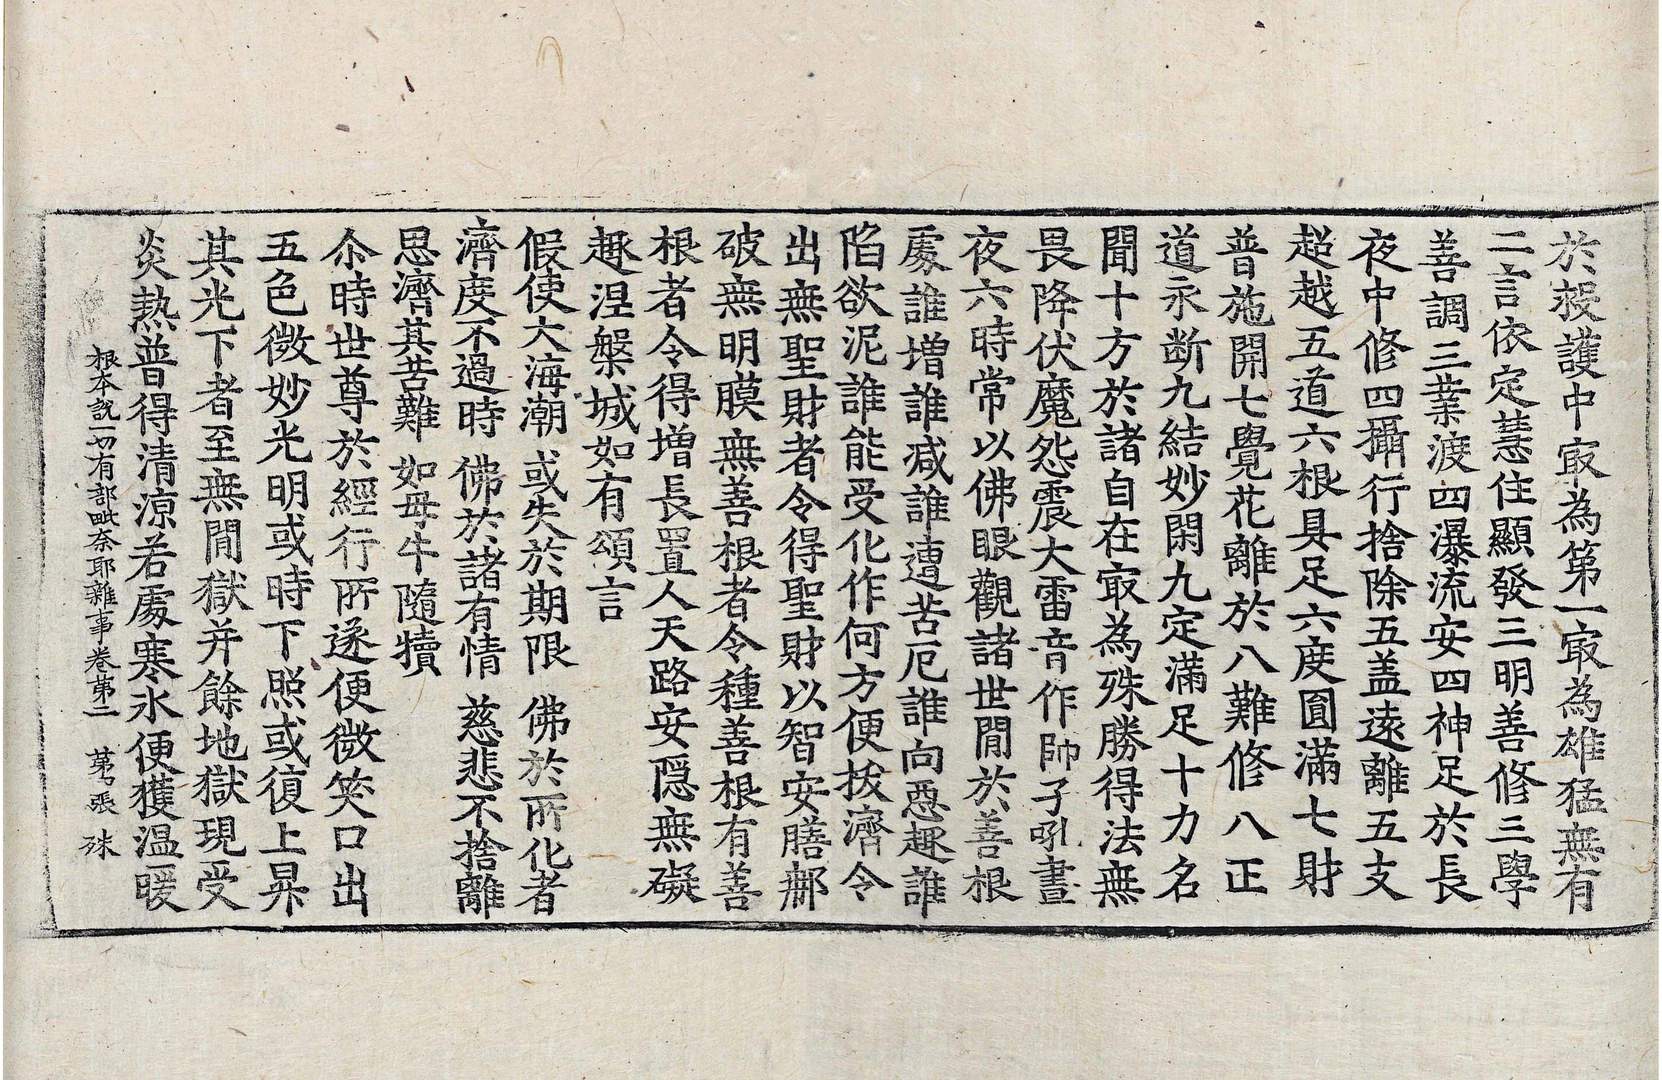 於救護中㝡為第一㝡為雄猛無有
二言依定慧住顯發三明善修三學
善調三業渡四瀑流安四神足於長
夜中修四攝行捨除五盖遠離五支
超越五道六根具足六度圓滿七財
普施開七覺花離於八難修八正
道永断九結妙閑九定滿足十力名
聞十方於諸自在㝡為殊勝得法無
畏降伏魔怨震大雷音作師子吼晝
夜六時常以佛眼觀諸世閒於善根
處誰增誰减誰遭苦厄誰向惡趣誰
陷欲泥誰能受化作何方便拔濟令
出無聖財者令得聖財以智安膳郍
破無明膜無善根者令種善根有善
根者令得增長置人天路安隱無礙
趣涅槃城如有頌言
假使大海潮 或失於期限 佛於所化者
濟度不過時 佛於諸有情 慈悲不捨離
思濟其苦難 如母牛隨犢
尒時世尊於經行所遂便微笑口出
五色微妙光明或時下照或復上昇
其光下者至無閒獄并餘地獄現受
炎熱普得清涼若處寒氷便獲溫暖
根本說一切有部毗奈耶雜事卷第二 第 張